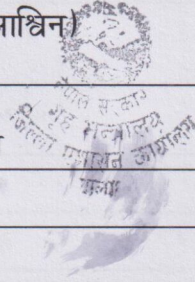 ाश्विन)
नेपाल सरकार
गृह मन्त्रालय
जिल्ला प्रशासन कार्यालय